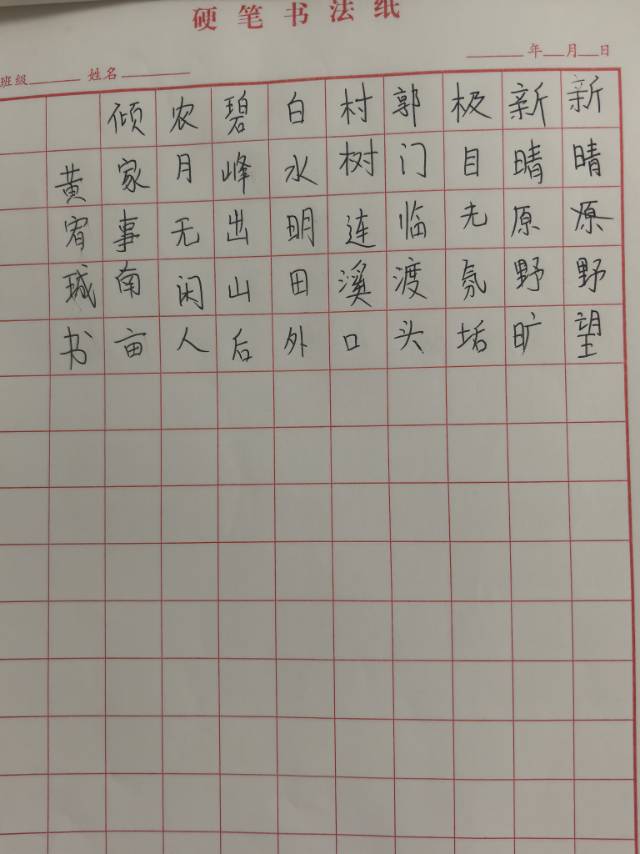 硬笔书法纸
年 月 日
班级 姓名
新晴原野望
新晴原野旷
极目无氛垢
郭门临渡头
村树连溪口
白水明田外
碧峰出山后
农月无闲人
倾家事南亩
黄宥书